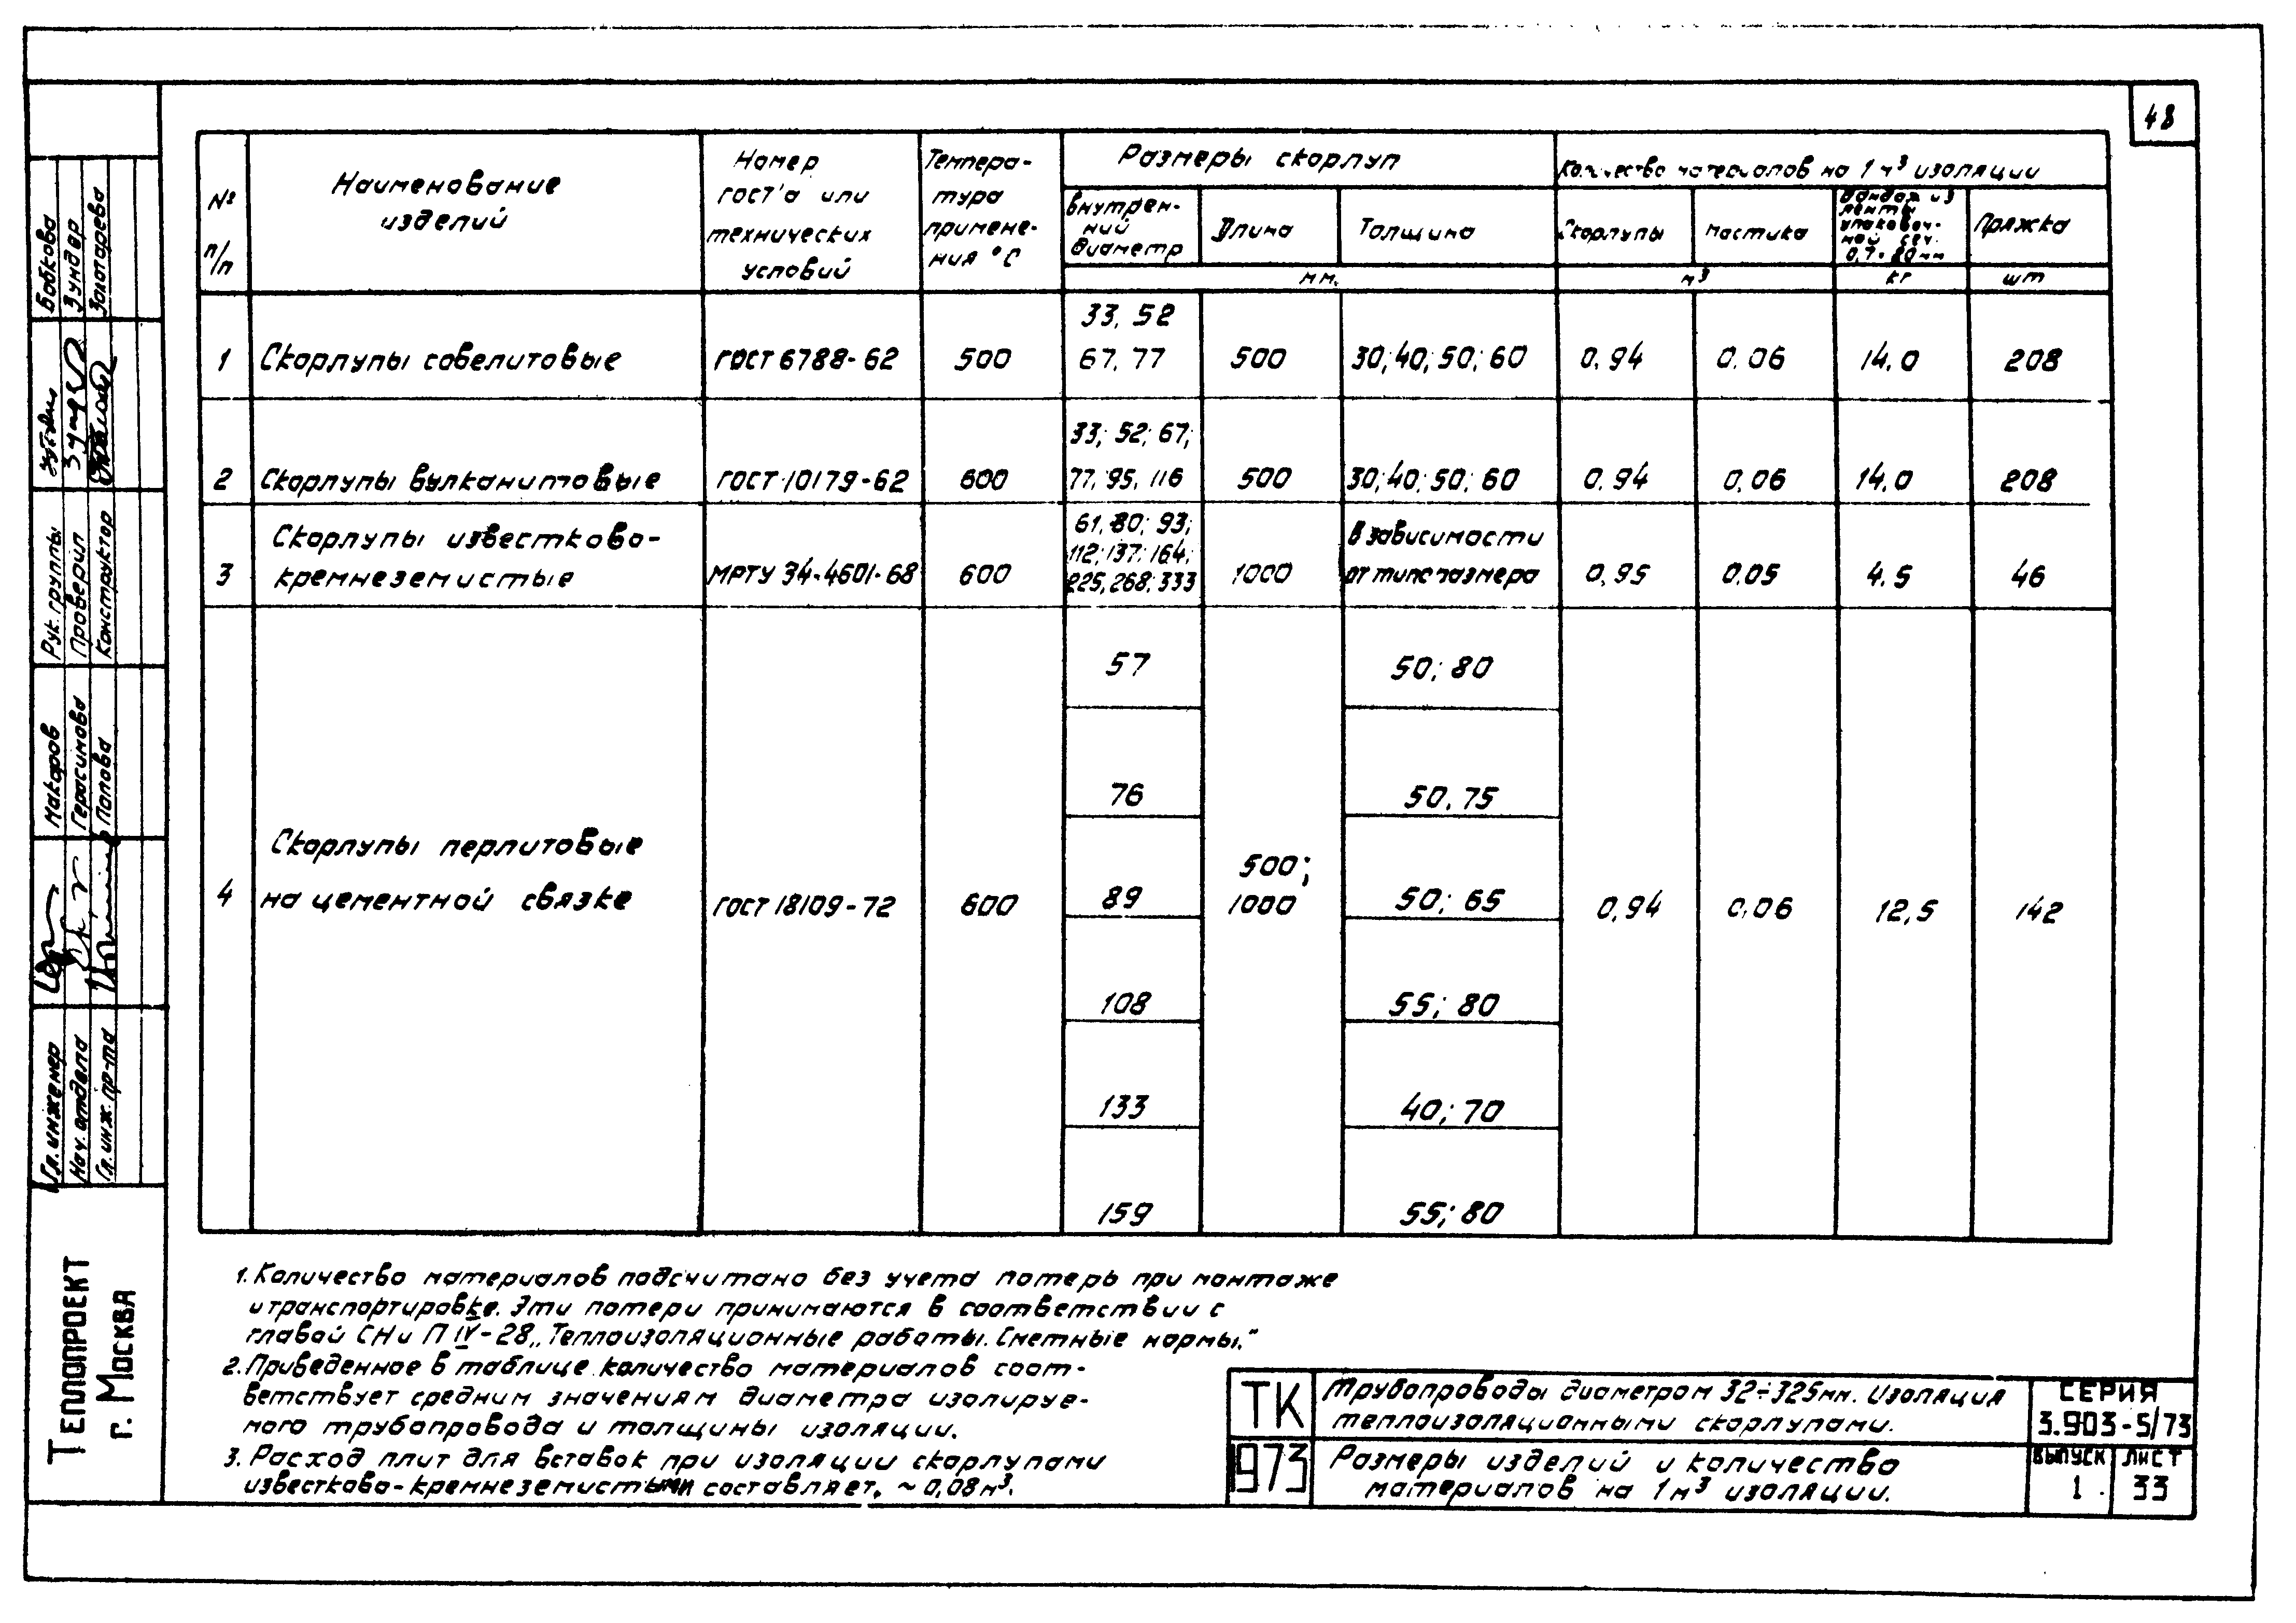 48
№ п/п
Наименование изделий
Номер гост'а или технических условий
Темпера-
тура
примене-
ния °С
Размеры скорлуп
Внутрен-
ний
диаметр
Длина
Толщина
мм.
Количество материалов на 1 м³ изоляции
Скорлупы
мастика
м³
Бандаж из
ленты
упаковоч-
ной сеч.
0,7×20мм
кг
Пряжка
шт
33, 52
1 Скорлупы совелитовые ГОСТ 6788-62 500 67, 77 500 30; 40; 50; 60 0,94 0,06 14,0 208
33; 52; 67;
2 Скорлупы вулканитовые ГОСТ 10179-62 600 77, 95, 116 500 30; 40; 50; 60 0,94 0,06 14,0 208
Скорлупы известково- 61, 80; 93; В зависимости
112; 137; 164;
3 кремнеземистые МРТУ 34-4601-68 600 225, 268; 333 1000 от типоразмера 0,95 0,05 4.5 46
57 50; 80
76 50, 75
Скорлупы перлитовые 500;
4 на цементной связке ГОСТ 18109-72 600 89 1000 50; 65 0,94 0,06 12,5 142
108 55; 80
133 40; 70
159 55; 80
1. Количество материалов подсчитано без учета потерь при монтаже
и транспортировке. Эти потери принимаются в соответствии с
главой СНиП IV-28 „Теплоизоляционные работы. Сметные нормы."
2. Приведенное в таблице количество материалов соот-
ветствует средним значениям диаметра изолируе-
мого трубопровода и толщины изоляции.
3. Расход плит для вставок при изоляции скорлупами
известково-кремнеземистыми составляет ~ 0,08 м³.
ТК
1973
Трубопроводы диаметром 32÷325мм. Изоляция
теплоизоляционными скорлупами.
Размеры изделий и количество
материалов на 1 м³ изоляции.
СЕРИЯ
3.903-5/73
ВЫПУСК ЛИСТ
1 33
Бобкова
Зундер
Золотарева
Рук. группы
Проверил
Конструктор
Макаров
Герасимова
Попова
Гл. инженер
Нач. отдела
Гл. инж. пр-та
ТЕПЛОПРОЕКТ
г. Москва